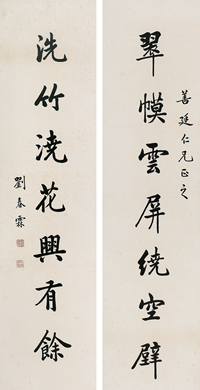 翠幙雲屏繞空壁
善廷仁兄正之
洗竹澆花興有餘
劉春霖